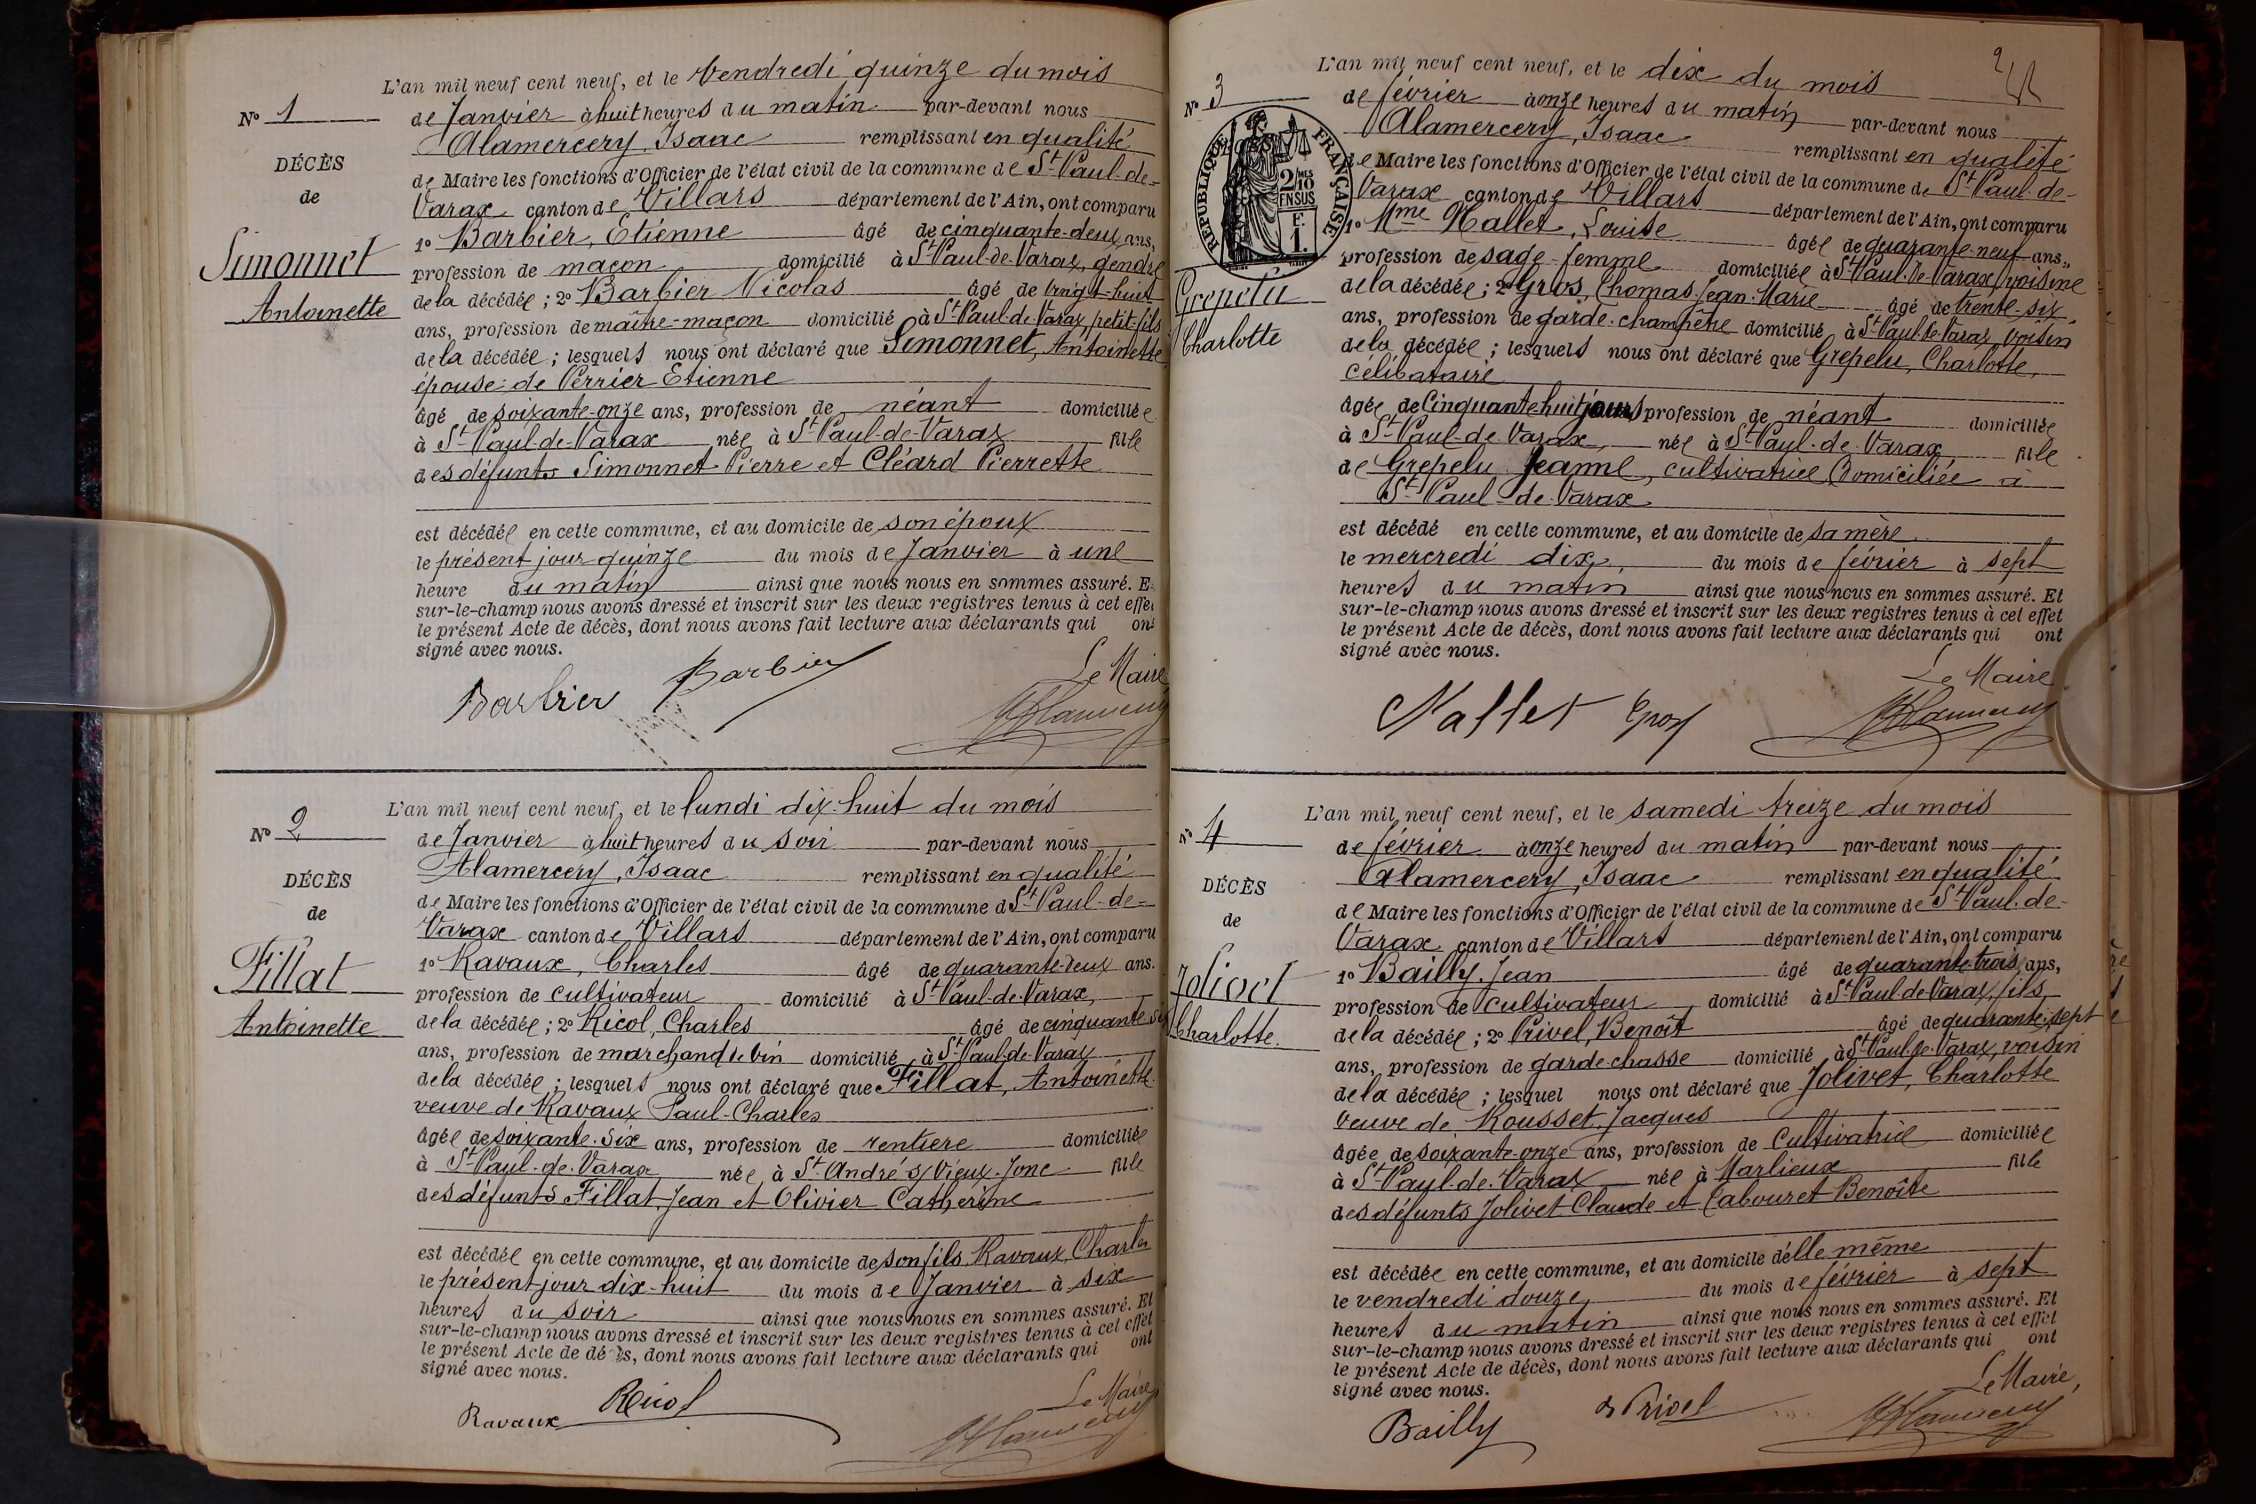 L'an mil neuf cent neuf, et le Vendredi quinze du mois
N° 1
de Janvier à huit heures du matin par-devant nous
Alamercery, Isaac remplissant en qualité
DÉCÈS
de Maire les fonctions d'Officier de l'état civil de la commune de St Paul-de-
de
Varax canton de Villars département de l'Ain, ont comparu
Simonnet
1° Barbier, Etienne âgé de cinquante-deux ans,
profession de maçon domicilié à St Paul-de-Varax, gendre
Antoinette
de la décédée ; 2° Barbier Nicolas âgé de vingt-huit
ans, profession de maître-maçon domicilié à St Paul-de-Varax, petit-fils
de la décédée ; lesquels nous ont déclaré que Simonnet, Antoinette
épouse de Perrier Etienne
âgé de soixante-onze ans, profession de néant domiciliée
à St Paul-de-Varax née à St Paul-de-Varax fille
des défunts Simonnet Pierre et Cléard Pierrette
est décédée en cette commune, et au domicile de son époux
le présent jour quinze du mois de Janvier à une
heure du matin ainsi que nous nous en sommes assuré. E
sur-le-champ nous avons dressé et inscrit sur les deux registres tenus à cet effet
le présent Acte de décès, dont nous avons fait lecture aux déclarants qui ont
signé avec nous.
Le Maire
Barbier Barbier
L'an mil neuf cent neuf, et le lundi dix-huit du mois
N° 2
de Janvier à huit heures du soir par-devant nous
Alamercery, Isaac remplissant en qualité
DÉCÈS
de Maire les fonctions d'Officier de l'état civil de la commune d St Paul-de-
de
Varax canton de Villars département de l'Ain, ont comparu
Fillat
1° Ravaux, Charles âgé de quarante-deux ans.
profession de cultivateur domicilié à St Paul-de-Varax,
Antoinette
de la décédée ; 2° Ricol, Charles âgé de cinquante six
ans, profession de marchand de vin domicilié à St Paul-de-Varax
de la décédée ; lesquels nous ont déclaré que Fillat, Antoinette
veuve de Ravaux Paul-Charles
âgée de soixante-six ans, profession de rentière domiciliée
à St Paul-de-Varax née à St André s/ Vieux-Jonc fille
des défunts Fillat Jean et Olivier Catherine
est décédée en cette commune, et au domicile de son fils Ravaux Charles
le présent jour dix-huit du mois de Janvier à six
heures du soir ainsi que nous nous en sommes assuré. Et
sur-le-champ nous avons dressé et inscrit sur les deux registres tenus à cet effet
le présent Acte de décès, dont nous avons fait lecture aux déclarants qui ont
signé avec nous.
Le Maire
Ravaux Ricol
2
L'an mil neuf cent neuf, et le dix du mois
N° 3
de février à onze heures du matin par-devant nous
Alamercery, Isaac remplissant en qualité
RÉPUBLIQUE FRANÇAISE
2/10 EN SUS
F.
1.
de Maire les fonctions d'Officier de l'état civil de la commune de St Paul-de-
Varax canton de Villars département de l'Ain, ont comparu
1° Mme Nallet, Louise âgée de quarante-neuf ans,
profession de sage-femme domiciliée à St Paul-de-Varax, voisine
Grepelu
de la décédée ; 2° Gros, Thomas Jean-Marie âgé de trente-six
Charlotte
ans, profession de garde-champêtre domicilié à St Paul-de-Varax, voisin
de la décédée ; lesquels nous ont déclaré que Grepelu, Charlotte,
célibataire
âgée de Cinquante-huit jours profession de néant domiciliée
à St Paul-de-Varax née à St Paul-de-Varax fille
de Grepelu Jeanne, cultivatrice domiciliée à
St Paul-de-Varax
est décédé en cette commune, et au domicile de sa mère
le mercredi dix, du mois de février à sept
heures du matin ainsi que nous nous en sommes assuré. Et
sur-le-champ nous avons dressé et inscrit sur les deux registres tenus à cet effet
le présent Acte de décès, dont nous avons fait lecture aux déclarants qui ont
signé avec nous.
Le Maire
Nallet Gros
L'an mil neuf cent neuf, et le samedi treize du mois
N° 4
de février à onze heures du matin par-devant nous
Alamercery, Isaac remplissant en qualité
DÉCÈS
de Maire les fonctions d'Officier de l'état civil de la commune de St Paul-de-
de
Varax canton de Villars département de l'Ain, ont comparu
Jolivet
1° Bailly, Jean âgé de quarante-trois ans,
profession de cultivateur domicilié à St Paul-de-Varax, fils
Charlotte.
de la décédée ; 2° Privel, Benoît âgé de quarante-sept
ans, profession de garde-chasse domicilié à St Paul-de-Varax, voisin
de la décédée ; lesquel nous ont déclaré que Jolivet, Charlotte
veuve de Rousset, Jacques
âgée de soixante-onze ans, profession de Cultivatrice domiciliée
à St Paul-de-Varax née à Marlieux fille
des défunts Jolivet Claude et Cabouret Benoîte
est décédée en cette commune, et au domicile d'elle même
le vendredi douze, du mois de février à sept
heures du matin ainsi que nous nous en sommes assuré. Et
sur-le-champ nous avons dressé et inscrit sur les deux registres tenus à cet effet
le présent Acte de décès, dont nous avons fait lecture aux déclarants qui ont
signé avec nous.
Le Maire,
Bailly Privel